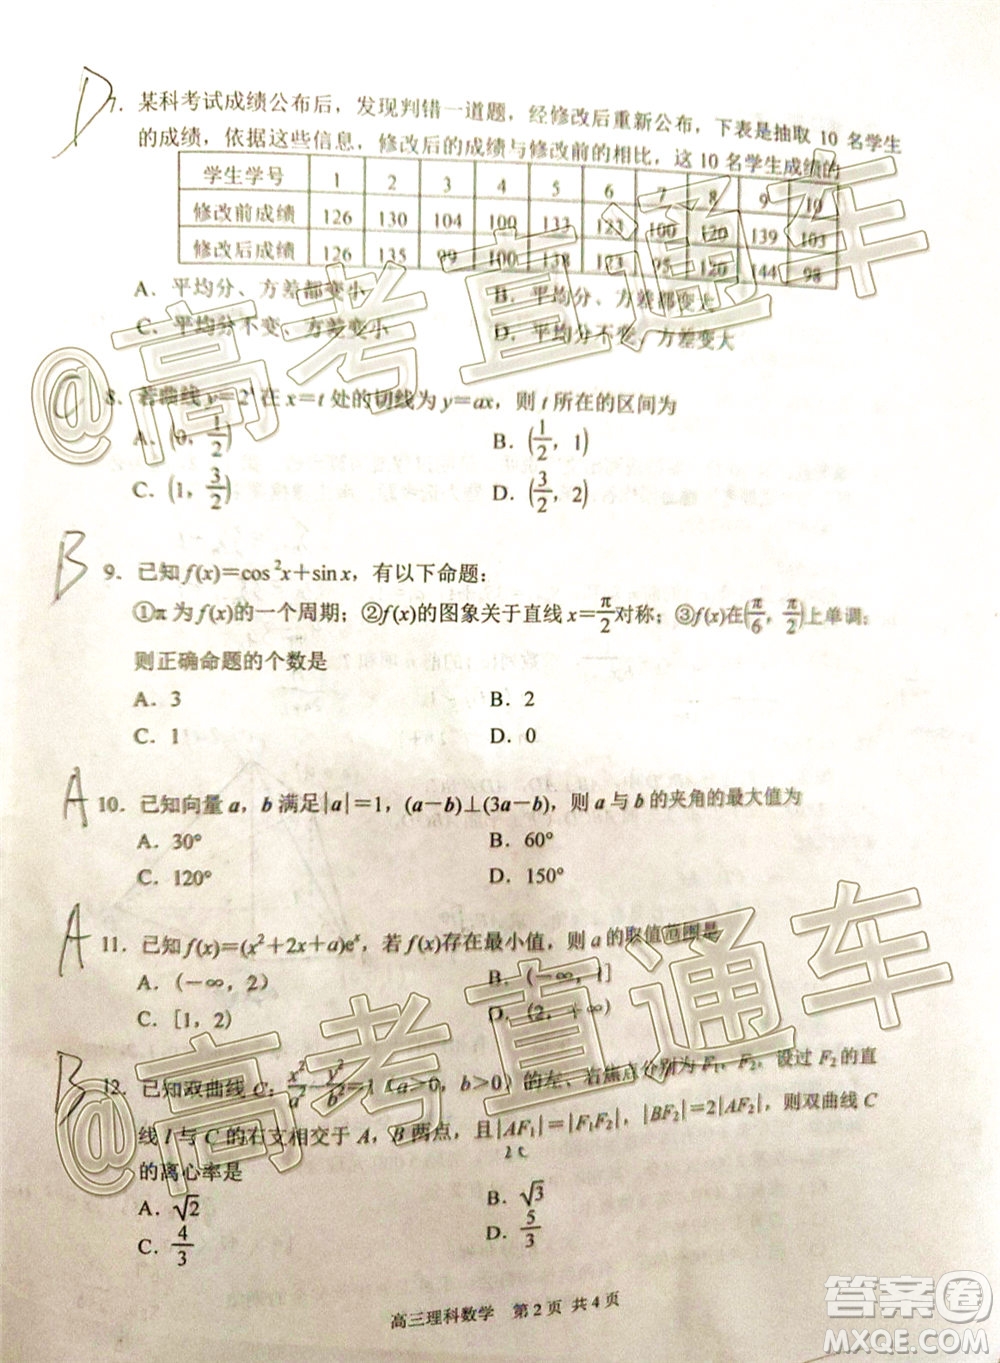 D
7．某科考试成绩公布后，发现判错一道题，经修改后重新公布，下表是抽取 10 名学生
的成绩，依据这些信息，修改后的成绩与修改前的相比，这 10 名学生成绩的
学生学号 1 2 3 4 5 6 7 8 9 10
修改前成绩 126 130 104 100 133 123 100 120 139 103
修改后成绩 126 135 99 100 138 123 95 120 144 98
A．平均分、方差都变小 B．平均分、方差都变大
C．平均分不变、方差变小 D．平均分不变、方差变大
C
8．若曲线 y=2ˣ 在 x=t 处的切线为 y=ax，则 t 所在的区间为
A．(0, 1/2) B．(1/2, 1)
C．(1, 3/2) D．(3/2, 2)
B
9．已知 f(x)=cos²x+sinx，有以下命题：
①π 为 f(x)的一个周期；②f(x)的图象关于直线 x=π/2 对称；③f(x)在(π/6, π/2)上单调；
则正确命题的个数是
A．3 B．2
C．1 D．0
A
10．已知向量 a，b 满足|a|=1，(a−b)⊥(3a−b)，则 a 与 b 的夹角的最大值为
A．30° B．60°
C．120° D．150°
A
11．已知 f(x)=(x²+2x+a)eˣ，若 f(x)存在最小值，则 a 的取值范围是
A．(−∞，2) B．(−∞，1]
C．[1，2) D．(2，+∞)
B
12．已知双曲线 C：x²/a²−y²/b²=1（a>0，b>0）的左、右焦点分别为 F₁，F₂，设过 F₂ 的直
线 l 与 C 的右支相交于 A，B 两点，且|AF₁|=|F₁F₂|，|BF₂|=2|AF₂|，则双曲线 C
2c
的离心率是
A．√2 B．√3
C．4/3 D．5/3
高三理科数学 第 2 页 共 4 页
@高考直通车
@高考直通车
答案圈
MXQE.COM